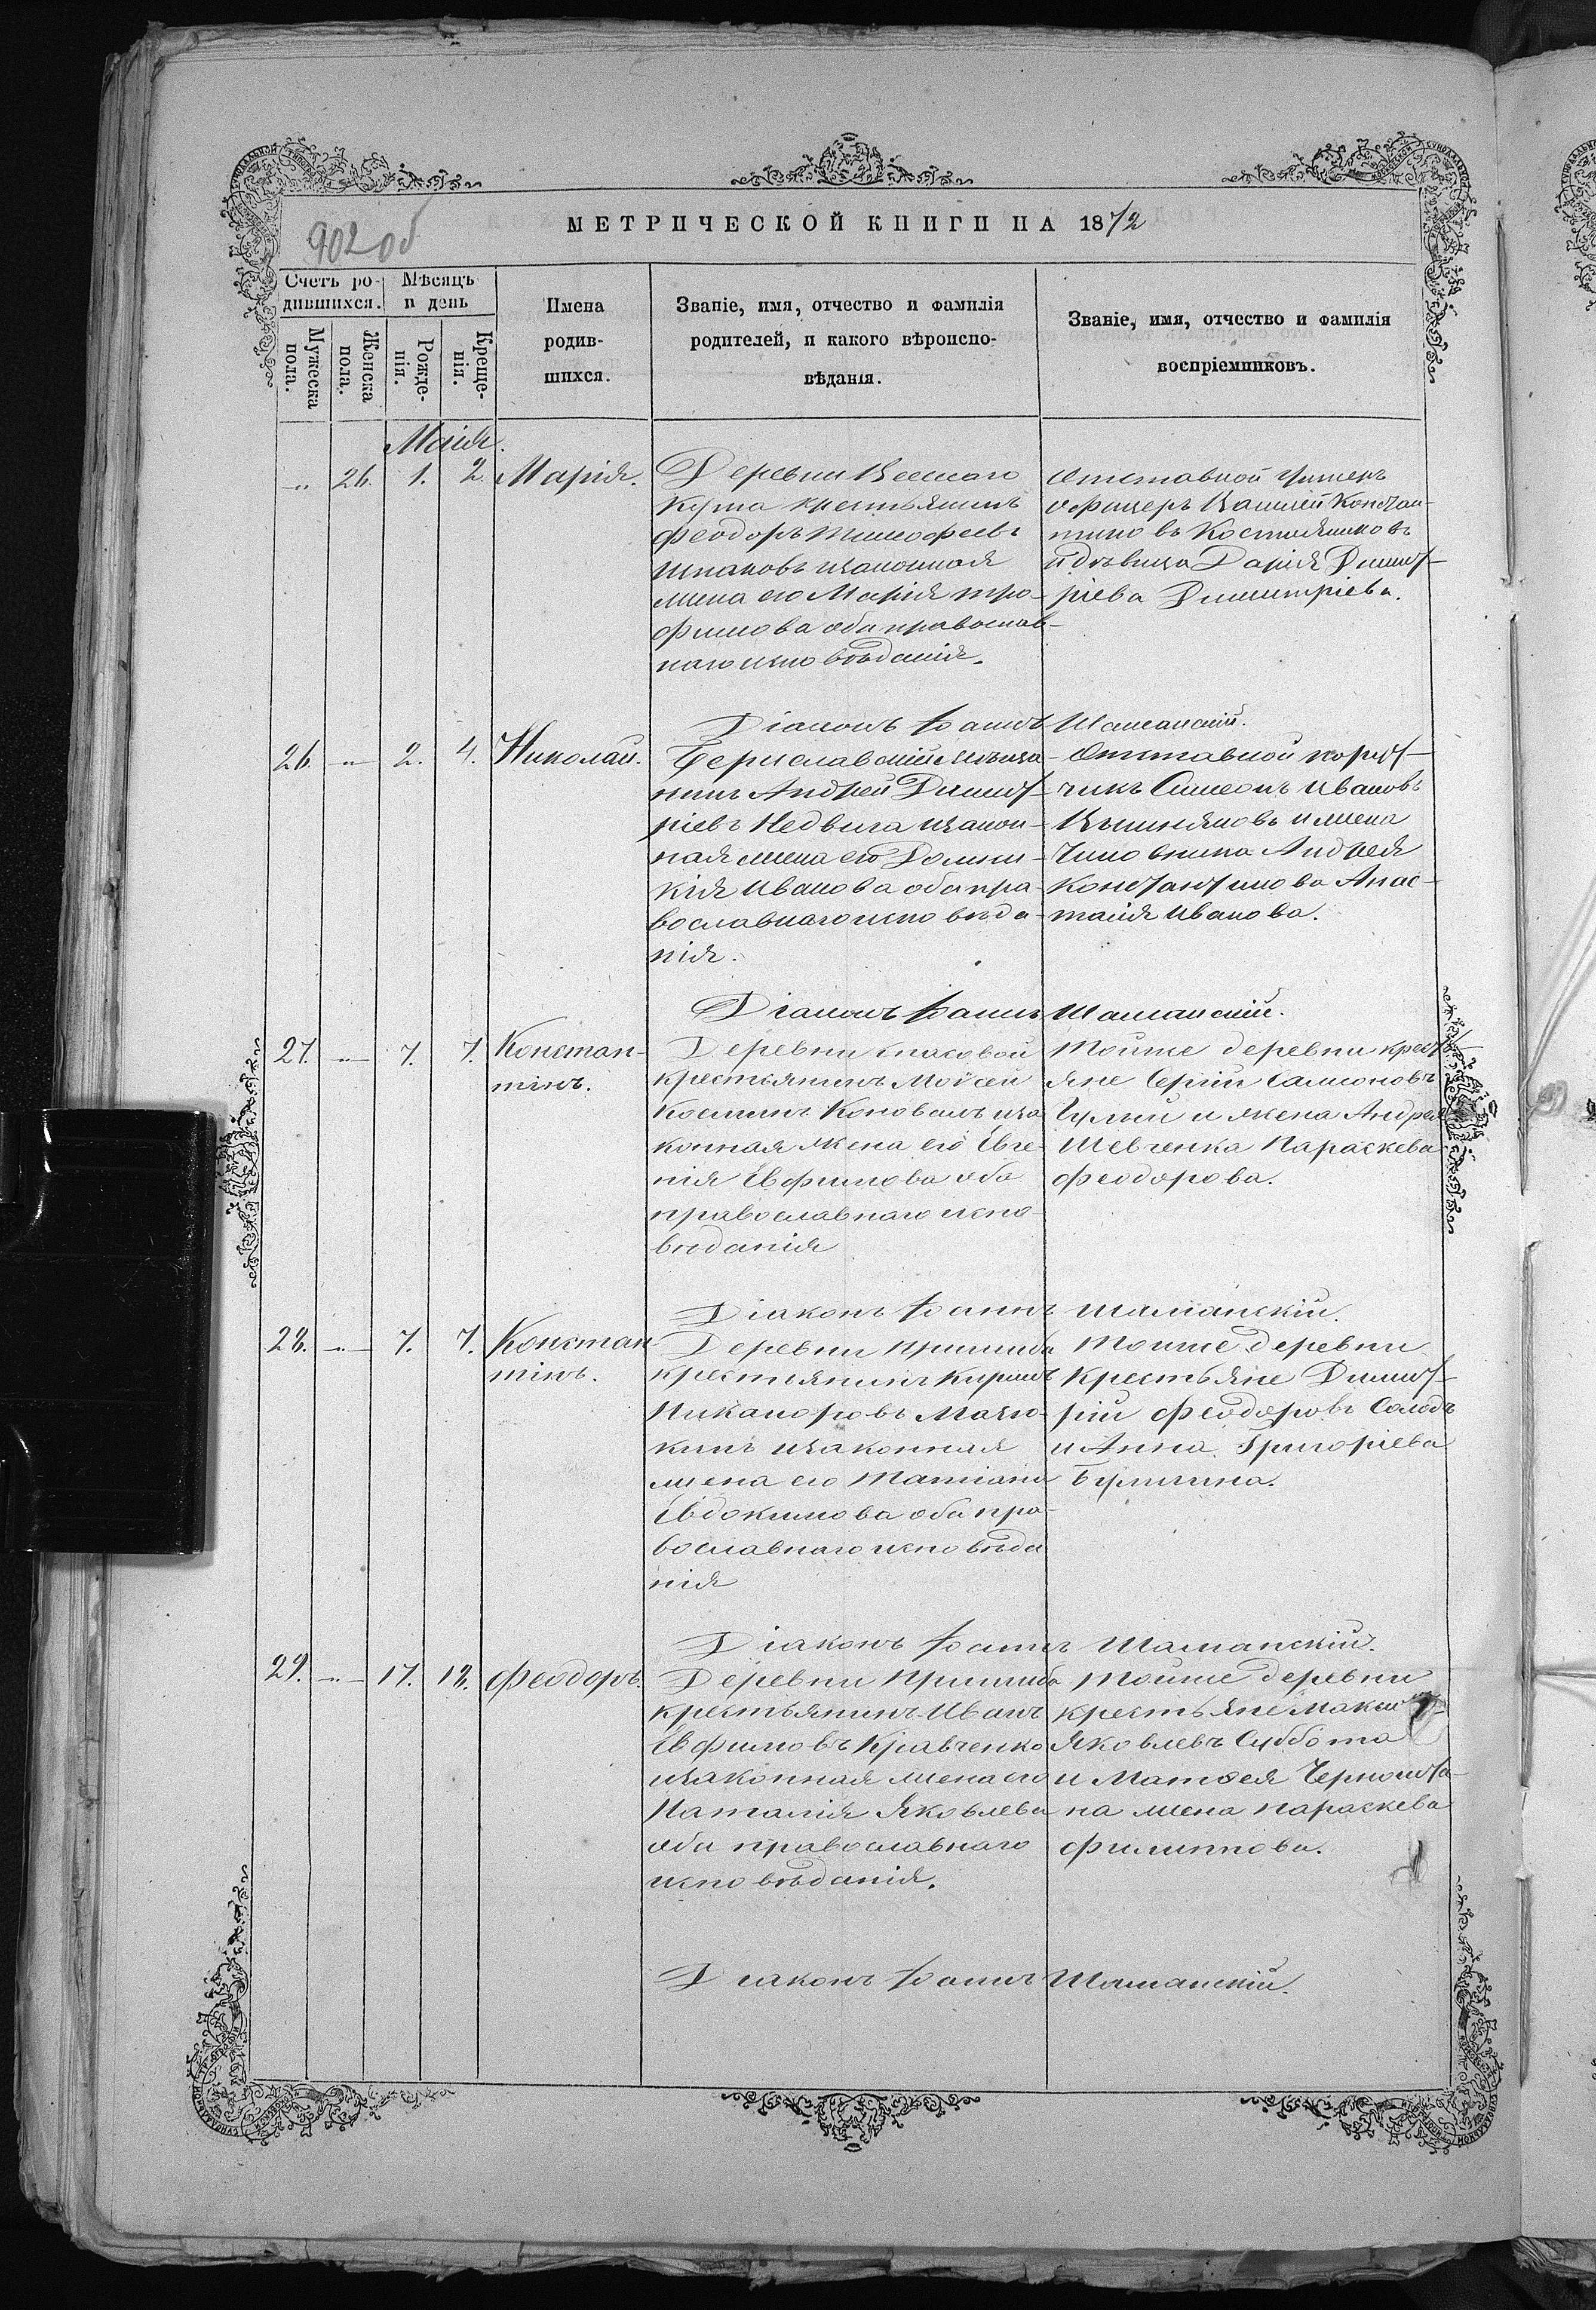 902 об
МЕТРИЧЕСКОЙ КНИГИ НА 1872
Счетъ ро-
дившихся.
Мужеска
пола.
Женска
пола.
Мѣсяцъ
и день
Рожде-
нія.
Креще-
нія.
Имена
родив-
шихся.
Званіе, имя, отчество и фамилія
родителей, и какого вѣроиспо-
вѣданія.
Званіе, имя, отчество и фамилія
воспріемниковъ.
Маія.
-"- 26. 1. 2. Марія.
Деревни Веселаго
Кута крестьянинъ
Феодоръ Тимофеевъ
Шпаковъ изаконная
жена его Марія Тро-
фимова оба православ-
наго исповѣданія.
Отставной Унтеръ
офицеръ Констан-
тиновъ
и дѣвица Дарія Димит-
ріева Димитріева.
Діаконъ Іоаннъ Шаманскій.
26. -"- 2. 4. Николай.
Бериславскій мѣща-
нинъ Андрей Димит-
ріевъ Недвига изакон-
ная жена его Домни-
кія Иванова оба пра-
вославнаго исповѣда-
нія.
Отставной порут-
чикъ Симеонъ Ивановъ
и жена
Чиновника Андрея
Константинова Анас-
тасія Иванова.
Діаконъ Іоаннъ Шаманскій.
27. -"- 7. 7. Констан-
тинъ.
Деревни Спасовой
крестьянинъ Мойсей
Косминъ Коновалъ иза
конная жена его Евге-
нія Евфимова оба
православнаго испо
вѣданія
Тойже деревни крест-
яне Сергій Самсоновъ
Чумий и жена Андрея
Шевченка Параскева
Феодорова.
Діаконъ Іоаннъ Шаманскій.
28. -"- 7. 7. Констан
тинъ.
Деревни Пришиба
крестьянинъ Кирилъ
Никаноровъ
кинъ изаконная
жена его Татіана
Евдокимова оба пра-
вославнаго исповѣда
нія
Тойже деревни
Крестьяне Димит-
рій Феодоровъ Солодъ
и Анна Григоріева
Діаконъ Іоаннъ Шаманскій.
29. -"- 17. 18. Феодоръ.
Деревни Пришиба
крестьянинъ Иванъ
Евфимовъ Кравченко
изаконная жена его
Наталія Яковлева
оба православнаго
исповѣданія.
Тойже деревни
крестьяне Максимъ
Яковлевъ Суббота
и Матѳея Черношта-
на жена Параскева
Филиппова.
Діаконъ Іоаннъ Шаманскій.